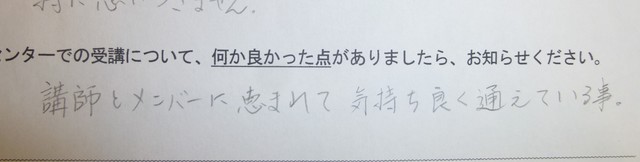 思いつきません.
センターでの受講について、何か良かった点がありましたら、お知らせください。
講師とメンバーに恵まれて気持ち良く通えている事。